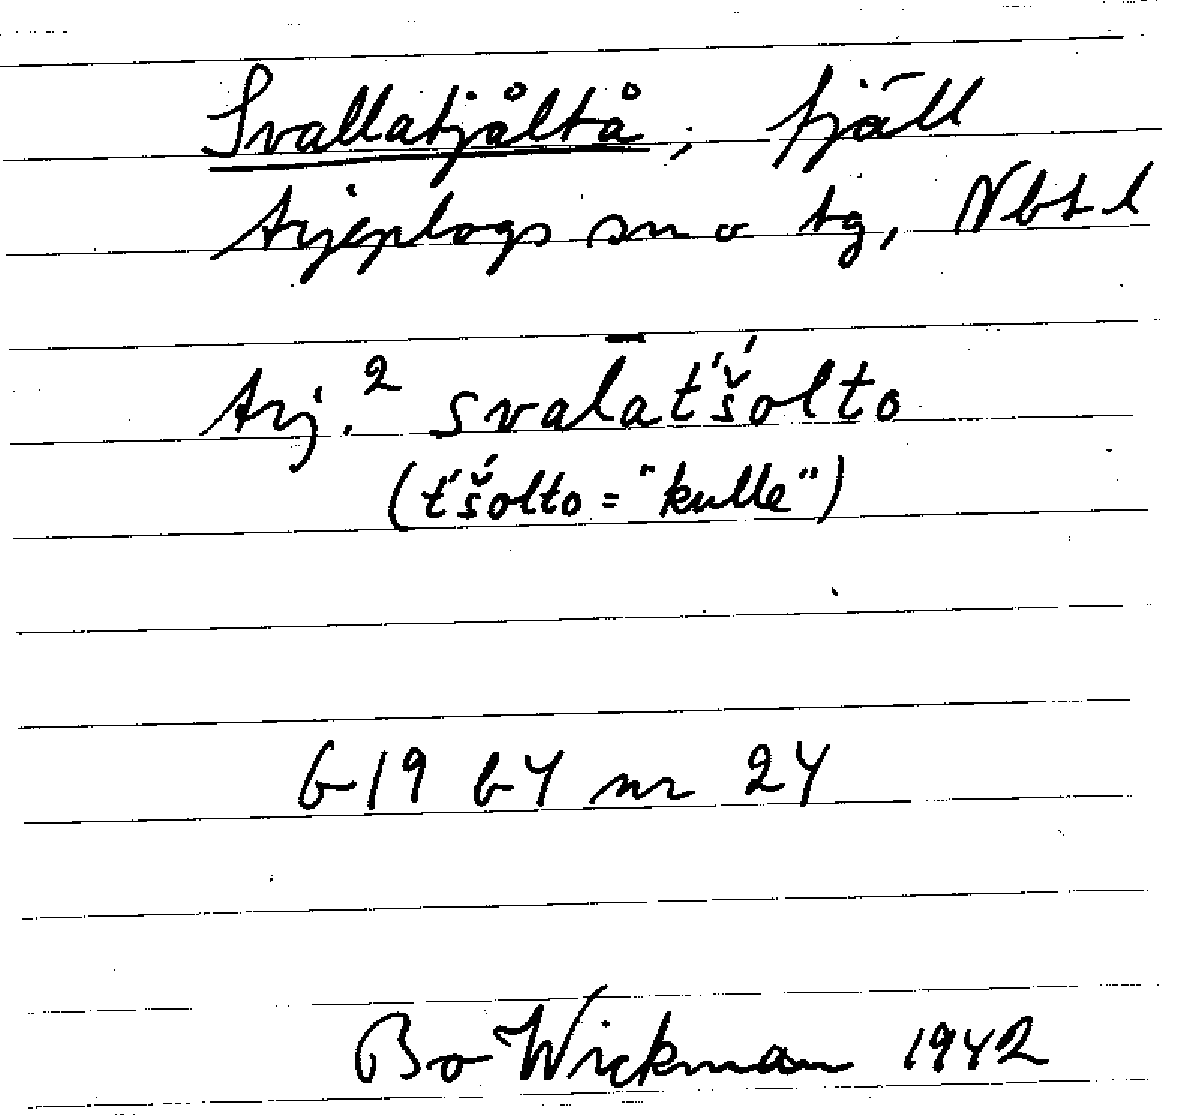 Svallatjåltå, fjäll
Arjeplogs sn o tg, Nbt l
Arj.² svalaťš́olto
(ťš́olto = "kulle")
G 19 b 4 nr 24
Bo Wickman 1942